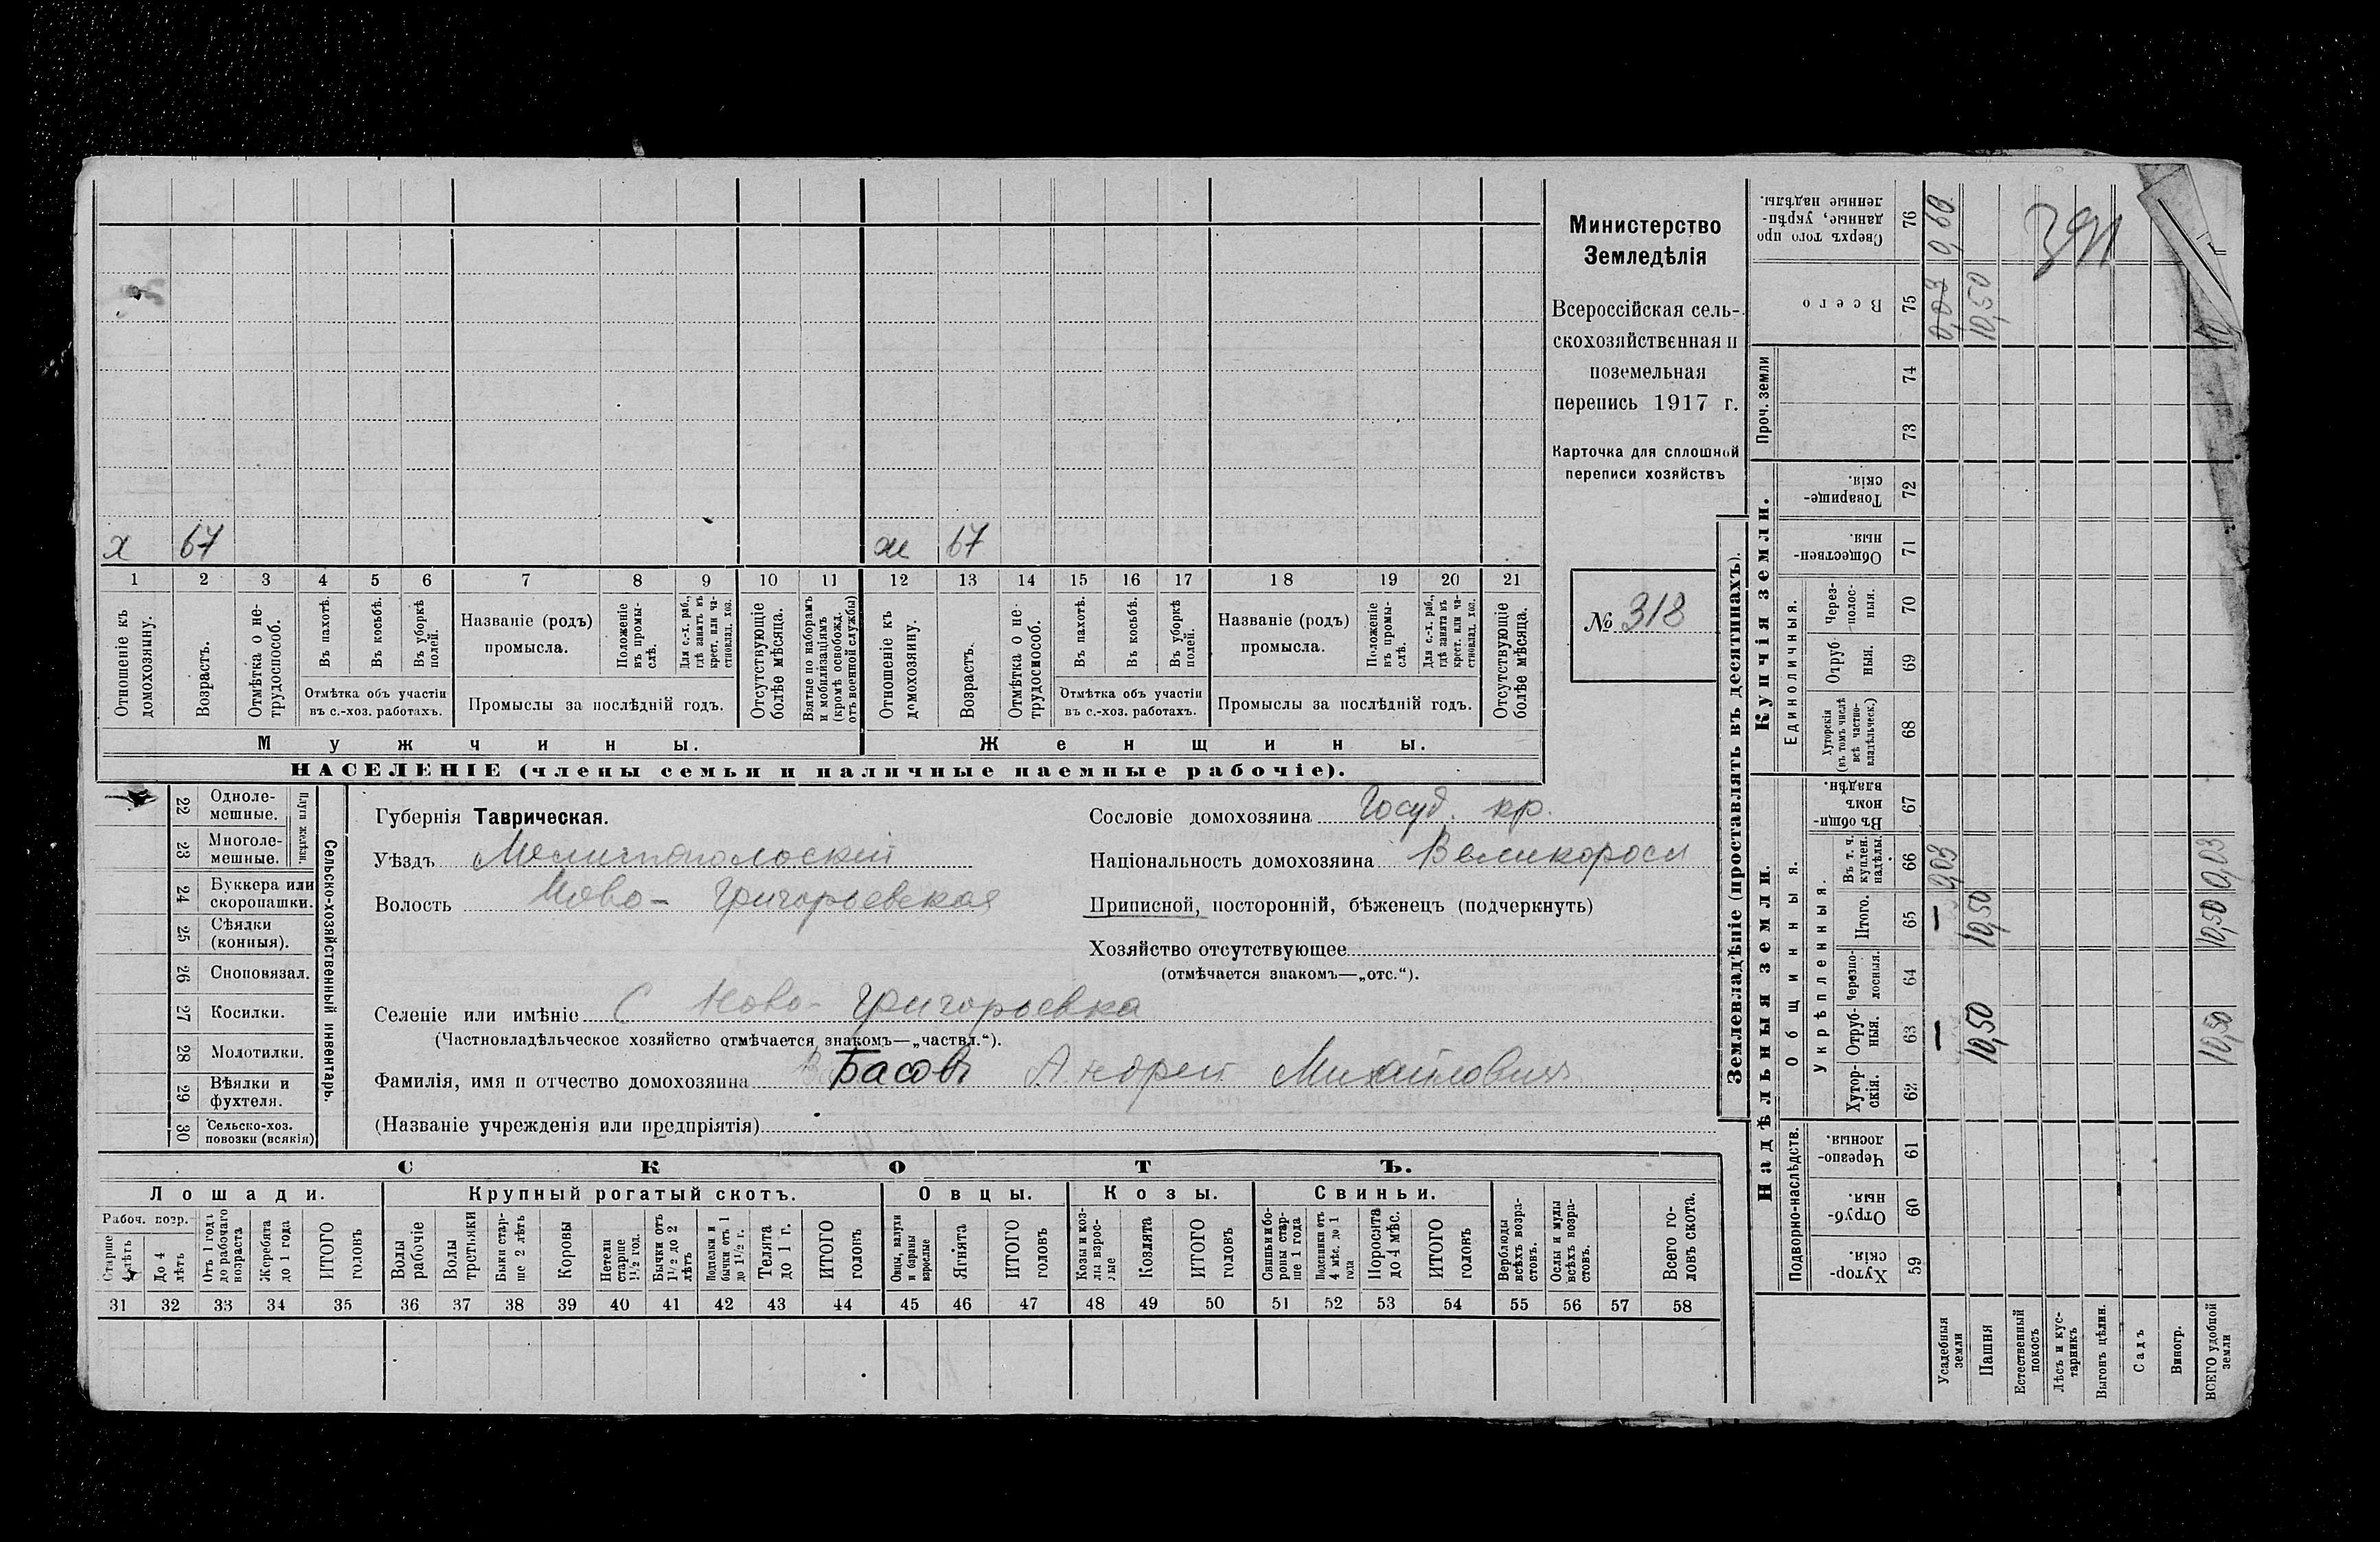 Министерство
Земледѣлія
Всероссійская сель-
скохозяйственная и
поземельная
перепись 1917 г.
Карточка для сплошной
переписи хозяйствъ
№ 318
х 67 ж 67
1 2 3 4 5 6 7 8 9 10 11 12 13 14 15 16 17 18 19 20 21
Отношеніе къ домохозяину.
Возрастъ.
Отмѣтка о не-трудоспособ.
Въ пахотѣ.
Въ косьбѣ.
Въ уборкѣ полей.
Отмѣтка объ участіи
въ с.-хоз. работахъ.
Названіе (родъ)
промысла.
Положеніе въ промы-слѣ.
Для с.-х. раб., гдѣ занятъ въ крест. или ча-стновлад. хоз.
Промыслы за послѣдній годъ.
Отсутствующіе болѣе мѣсяца.
Взятые по наборамъ и мобилизаціямъ (кромѣ освобожд. отъ военной службы)
Отношеніе къ домохозяину.
Возрастъ.
Отмѣтка о не-трудоспособ.
Въ пахотѣ.
Въ косьбѣ.
Въ уборкѣ полей.
Отмѣтка объ участіи
въ с.-хоз. работахъ.
Названіе (родъ)
промысла.
Положеніе въ промы-слѣ.
Для с.-х. раб., гдѣ занята въ крест. или ча-стновлад. хоз.
Промыслы за послѣдній годъ.
Отсутствующіе болѣе мѣсяца.
Мужчины. Женщины.
НАСЕЛЕНІЕ (члены семьи и наличные наемные рабочіе).
Сельско-хозяйственный инвентарь.
Плуги желѣзн.
22 Одноле-мешные.
23 Многоле-мешные.
24 Буккера или скоропашки.
25 Сѣялки (конныя).
26 Сноповязал.
27 Косилки.
28 Молотилки.
29 Вѣялки и фухтеля.
30 Сельско-хоз. повозки (всякія)
Губернія Таврическая.
Уѣздъ Мелитопольский
Волость Ново-Григорьевская
Сословіе домохозяина Госуд. кр.
Національность домохозяина Великоросы
Приписной, посторонній, бѣженецъ (подчеркнуть)
Хозяйство отсутствующее
(отмѣчается знакомъ—„отс.“).
Селеніе или имѣніе С Ново-Григорьевка
(Частновладѣльческое хозяйство отмѣчается знакомъ—„частвл.“).
Фамилія, имя и отчество домохозяина Басовъ Андрей Михайловичъ
(Названіе учрежденія или предпріятія)
СКОТЪ.
Лошади. Крупный рогатый скотъ. Овцы. Козы. Свиньи.
Рабоч. возр.
Старше 4 лѣтъ
До 4 лѣтъ
Отъ 1 года до рабочаго возраста
Жеребята до 1 года
ИТОГО головъ
Волы рабочіе
Волы тростьяки
Быки стар-ше 2 лѣтъ
Коровы
Нетели старше 1½ год.
Бычки отъ 1½ до 2 лѣтъ
Подтелки и бычки отъ 1 до 1½ г.
Телята до 1 г.
ИТОГО головъ
Овцы, валухи и бараны взрослые
Ягнята
ИТОГО головъ
Козы и коз-лы взрос-лые
Козлята
ИТОГО головъ
Свиньи и бо-ровы стар-ше 1 года
Подсвинки отъ 4 мѣс. до 1 года
Поросята до 4 мѣс.
ИТОГО головъ
Верблюды всѣхъ возра-стовъ.
Ослы и мулы всѣхъ возра-стовъ.
Всего го-ловъ скота.
31 32 33 34 35 36 37 38 39 40 41 42 43 44 45 46 47 48 49 50 51 52 53 54 55 56 57 58
Землевладѣніе (проставлять въ десятинахъ).
Надѣльныя земли. Купчія земли.
Подворно-наслѣдств.
Хутор-скія. 59
Отруб-ныя. 60
Черезпо-лосныя. 61
Общинныя.
Укрѣпленныя.
Хутор-скія. 62
Отруб-ныя. 63
Черезпо-лосныя. 64
Итого. 65
Въ т. ч. куплен. надѣлы 66
Въ общи-номъ владѣн. 67
Единоличныя.
Хуторскія (въ томъ числѣ всѣ частно-владѣльческ.) 68
Отруб-ныя. 69
Через-полос-ныя. 70
Обществен-ныя. 71
Товарище-скія. 72
Проч. земли
73 74
Всего 75
Сверхъ того про-данные, укрѣп-ленные надѣлы. 76
Усадебныя земли — — 0,03 0,03 0,60
Пашня 10,50 10,50 10,50
Естественный покосъ
Лѣсъ и кус-тарникъ
Выгонъ цѣлин.
Садъ
Виногр.
ВСЕГО удобной земли 10,50 10,50 0,03
391